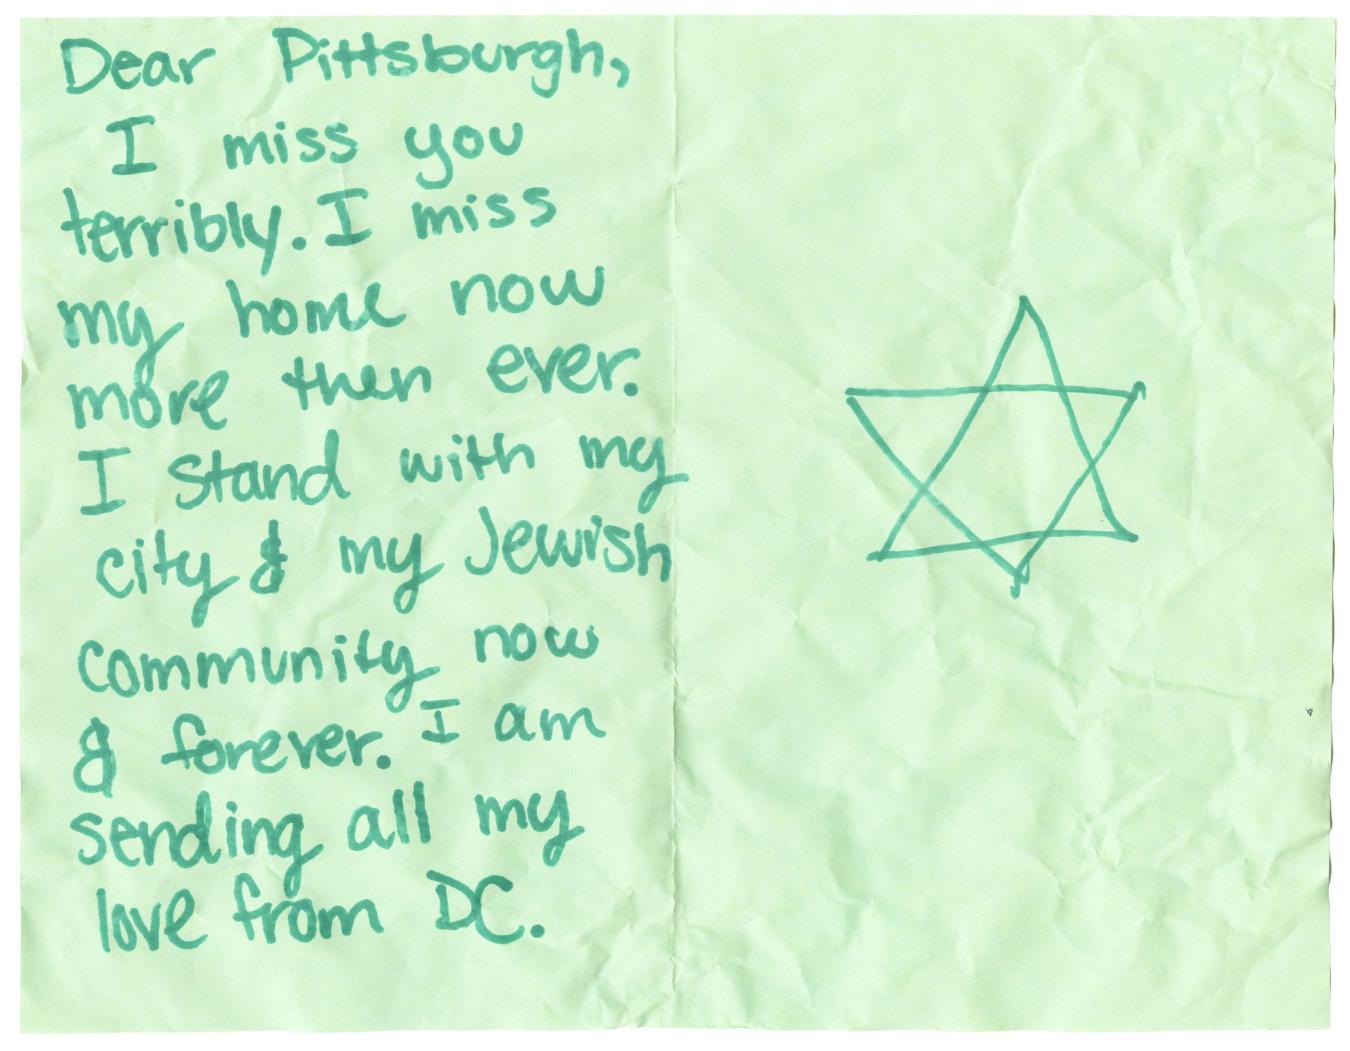 Dear Pittsburgh,
I miss you
terribly. I miss
my home now
more then ever.
I stand with my
city & my Jewish
community now
& forever. I am
sending all my
love from DC.